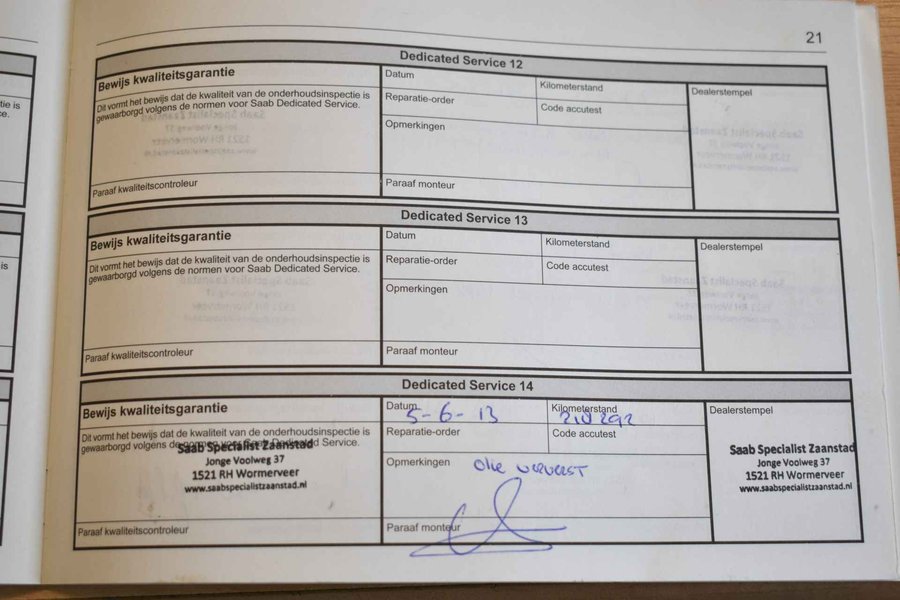 21
Dedicated Service 12
Bewijs kwaliteitsgarantie
Dit vormt het bewijs dat de kwaliteit van de onderhoudsinspectie is
gewaarborgd volgens de normen voor Saab Dedicated Service.
Paraaf kwaliteitscontroleur
Datum
Kilometerstand
Reparatie-order
Code accutest
Opmerkingen
Paraaf monteur
Dealerstempel
Dedicated Service 13
Bewijs kwaliteitsgarantie
Dit vormt het bewijs dat de kwaliteit van de onderhoudsinspectie is
gewaarborgd volgens de normen voor Saab Dedicated Service.
Paraaf kwaliteitscontroleur
Datum
Kilometerstand
Reparatie-order
Code accutest
Opmerkingen
Paraaf monteur
Dealerstempel
Dedicated Service 14
Bewijs kwaliteitsgarantie
Dit vormt het bewijs dat de kwaliteit van de onderhoudsinspectie is
gewaarborgd volgens de normen voor Saab Dedicated Service.
Saab Specialist Zaanstad
Jonge Voolweg 37
1521 RH Wormerveer
www.saabspecialistzaanstad.nl
Paraaf kwaliteitscontroleur
Datum 5-6-13
Kilometerstand
Reparatie-order
Code accutest
Opmerkingen olie ververst
Paraaf monteur
Dealerstempel
Saab Specialist Zaanstad
Jonge Voolweg 37
1521 RH Wormerveer
www.saabspecialistzaanstad.nl